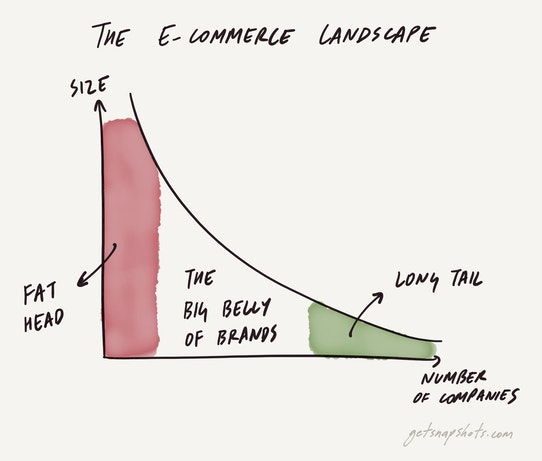 THE E-COMMERCE LANDSCAPE
SIZE
FAT
HEAD
THE
BIG BELLY
OF BRANDS
LONG TAIL
NUMBER
OF COMPANIES
getsnapshots.com